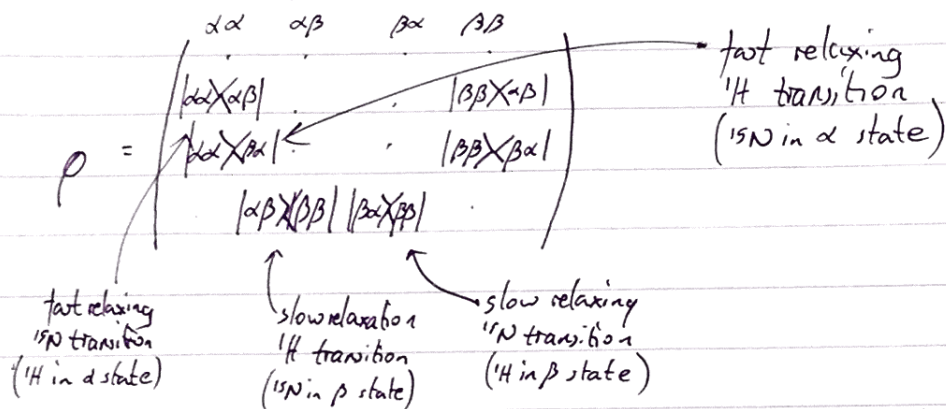 αα αβ βα ββ
|αα⟩⟨αβ| |ββ⟩⟨αβ|
ρ = |αα⟩⟨βα| |ββ⟩⟨βα|
|αβ⟩⟨ββ| |βα⟩⟨ββ|
fast relaxing
¹H transition
(¹⁵N in α state)
fast relaxing
¹⁵N transition
(¹H in α state)
slow relaxation
¹H transition
(¹⁵N in β state)
slow relaxing
¹⁵N transition
(¹H in β state)